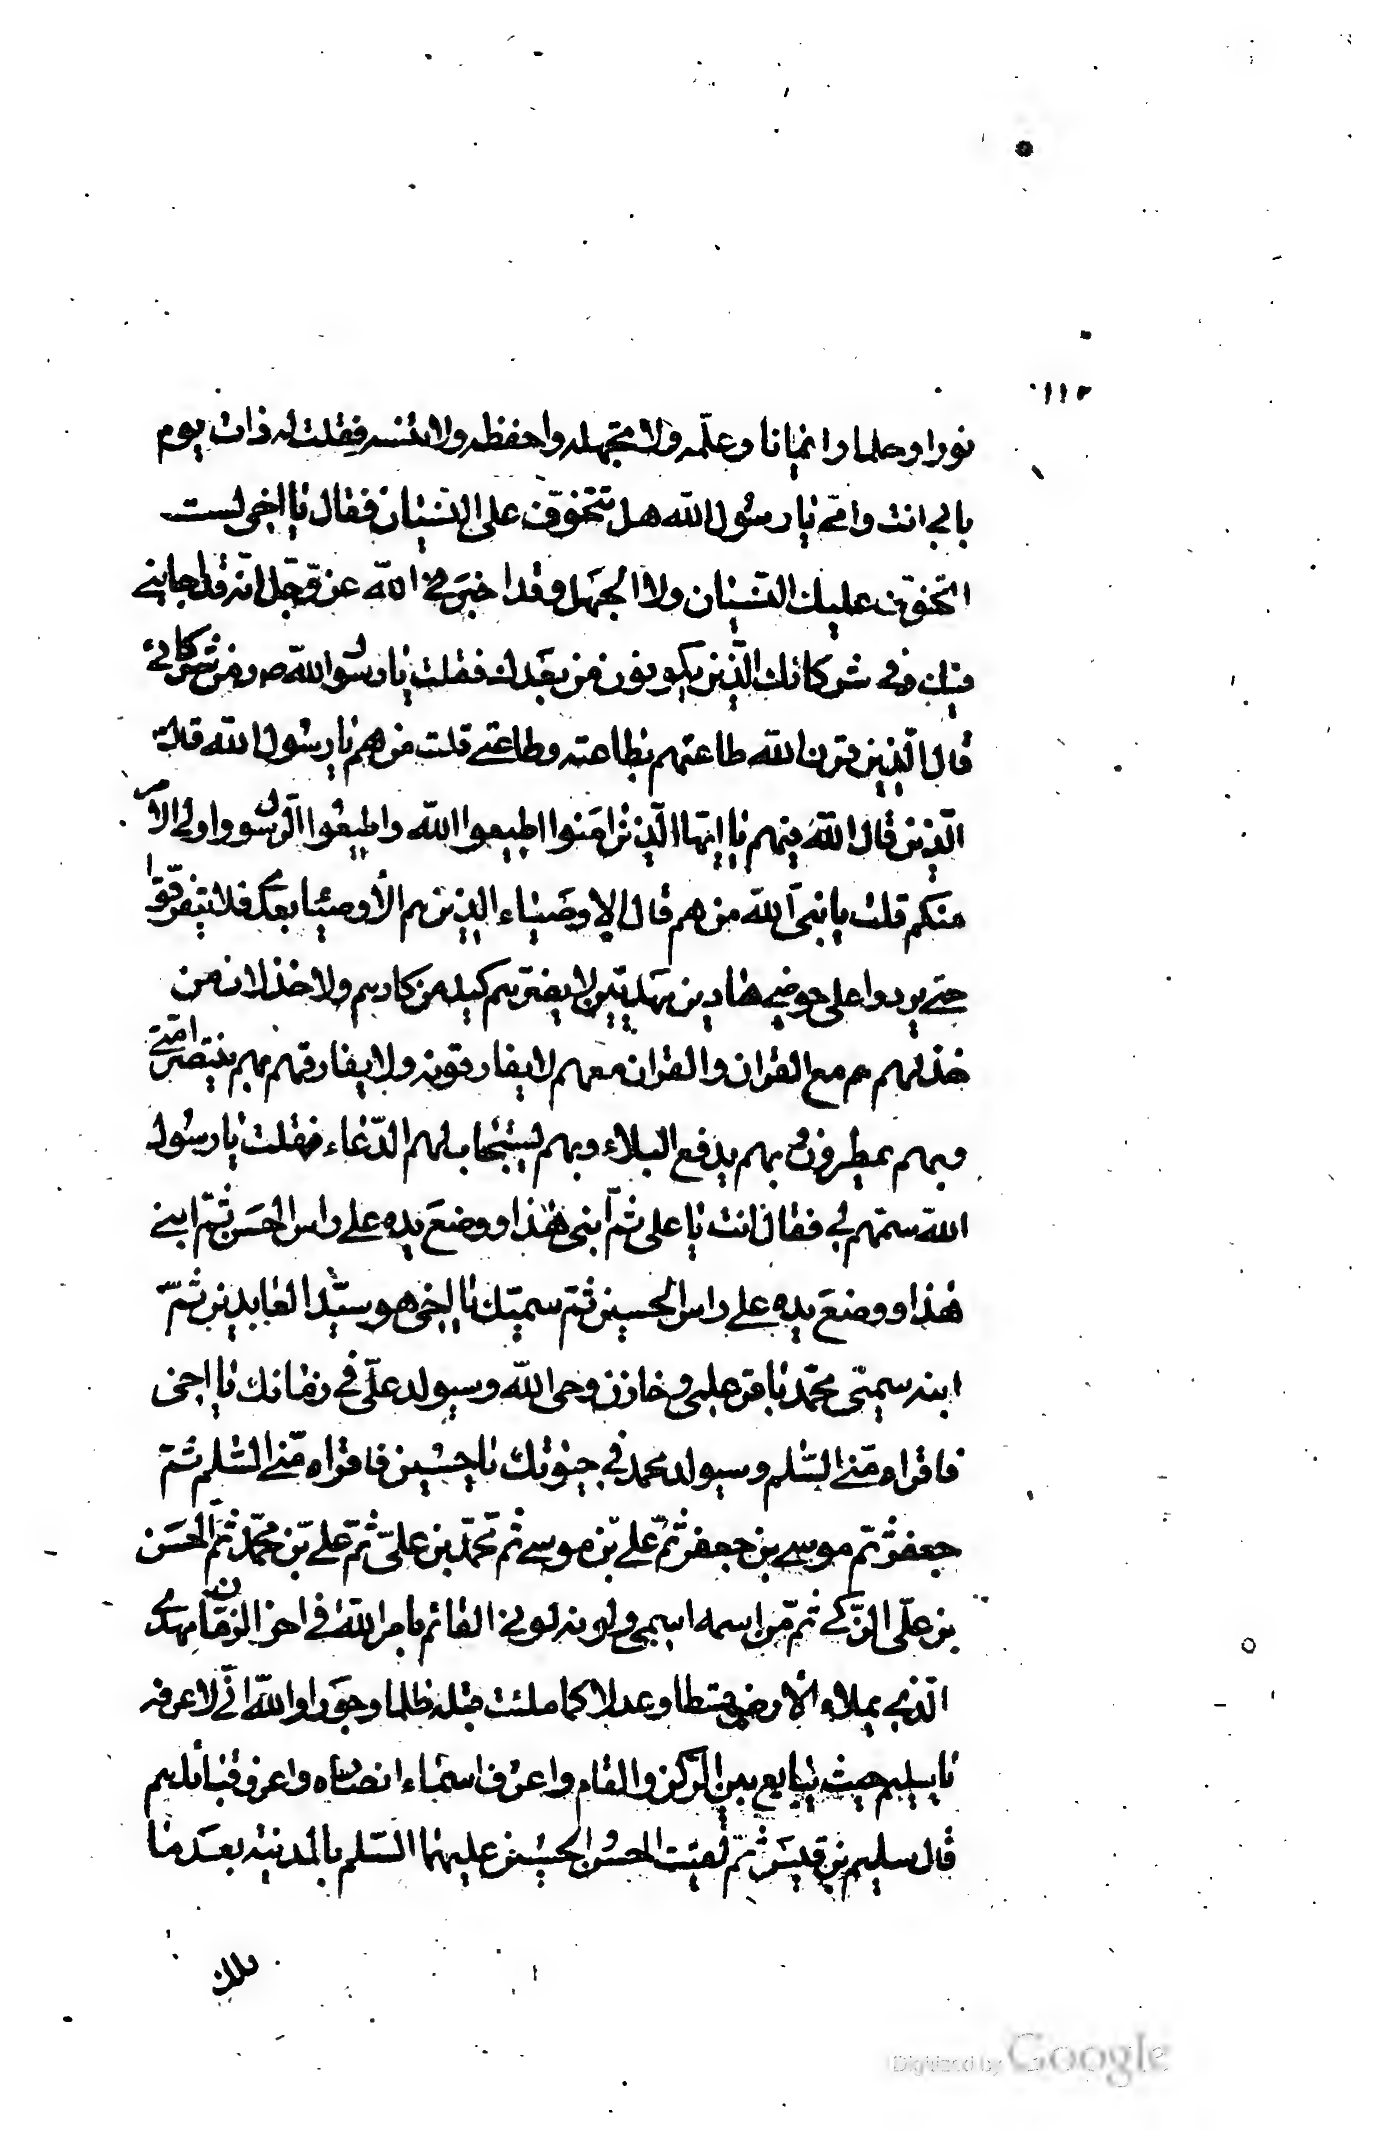 ١١٢
نورا وحلما وايمانا وعلمه ولا تجهله واحفظه ولا تنسه فقلت له ذات يوم
بابى انت وامى يا رسول الله هل تتخوف على النسيان فقال يا اخى لست
اتخوف عليك النسيان ولا الجهل وقد اخبرنى الله عز وجل انه قد اجابنى
فيك وفى شركائك الذين يكونون من بعدك فقلت يا رسول الله ص ومن شركائى
قال الذين قرن الله طاعتهم بطاعته وطاعتى قلت من هم يا رسول الله قال
الذين قال الله فيهم يا ايها الذين امنوا اطيعوا الله واطيعوا الرسول واولى الامر
منكم قلت يا نبى الله من هم قال الاوصياء الذين هم الأوصيا بعدى فلا يتفرقوا
حتى يردوا على حوضى هادين مهديين لا يضرهم كيد من كادهم ولا خذلان من
خذلهم هم مع القران والقران معهم لا يفارقونه ولا يفارقهم بهم ينتصر امتى
وبهم يمطرون وبهم يدفع البلاء وبهم يستجاب لهم الدعاء فقلت يا رسول
الله سمهم لى فقال انت يا على ثم ابنى هذا ووضع يده على راس الحسن ثم ابنى
هذا ووضع يده على راس الحسين ثم سميك يا اخى هو سيد العابدين ثم
ابنه سميى محمد باقر علمى وخازن وحى الله وسيولد على فى زمانك يا اخى
فاقراه منى السلم وسيولد محمد فى حيوتك يا حسين فاقراه منى السلم ثم
جعفر ثم موسى بن جعفر ثم على بن موسى ثم محمد بن على ثم على بن محمد ثم الحسن
بن على الزكى ثم من اسمه اسمى ولونه لونى القائم بامر الله فى اخر الزمان مهدى
الذى يملاء الأرض قسطا وعدلا كما ملئت قبله ظلما وجورا والله انى لاعرفه
يا سليم حيث يبايع بين الركن والمقام واعرف اسماء انصاره واعرف قبائلهم
قال سليم بن قيس ثم لقيت الحسن والحسين عليهما السلم بالمدينه بعد ما
ملك
Digitized by Google